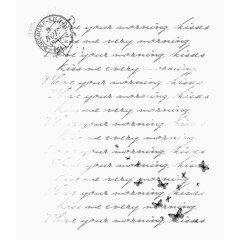 I love your morning kisses
kiss me every morning
I love your morning kisses
kiss me every morning
I love your morning kisses
kiss me very morning
I love your morning kisses
kiss me very morning
I love your morning kisses
kiss me very morning
I love your morning kisses
kiss me very morning
I love your morning kisses
kiss me very morning
I love your morning kisses